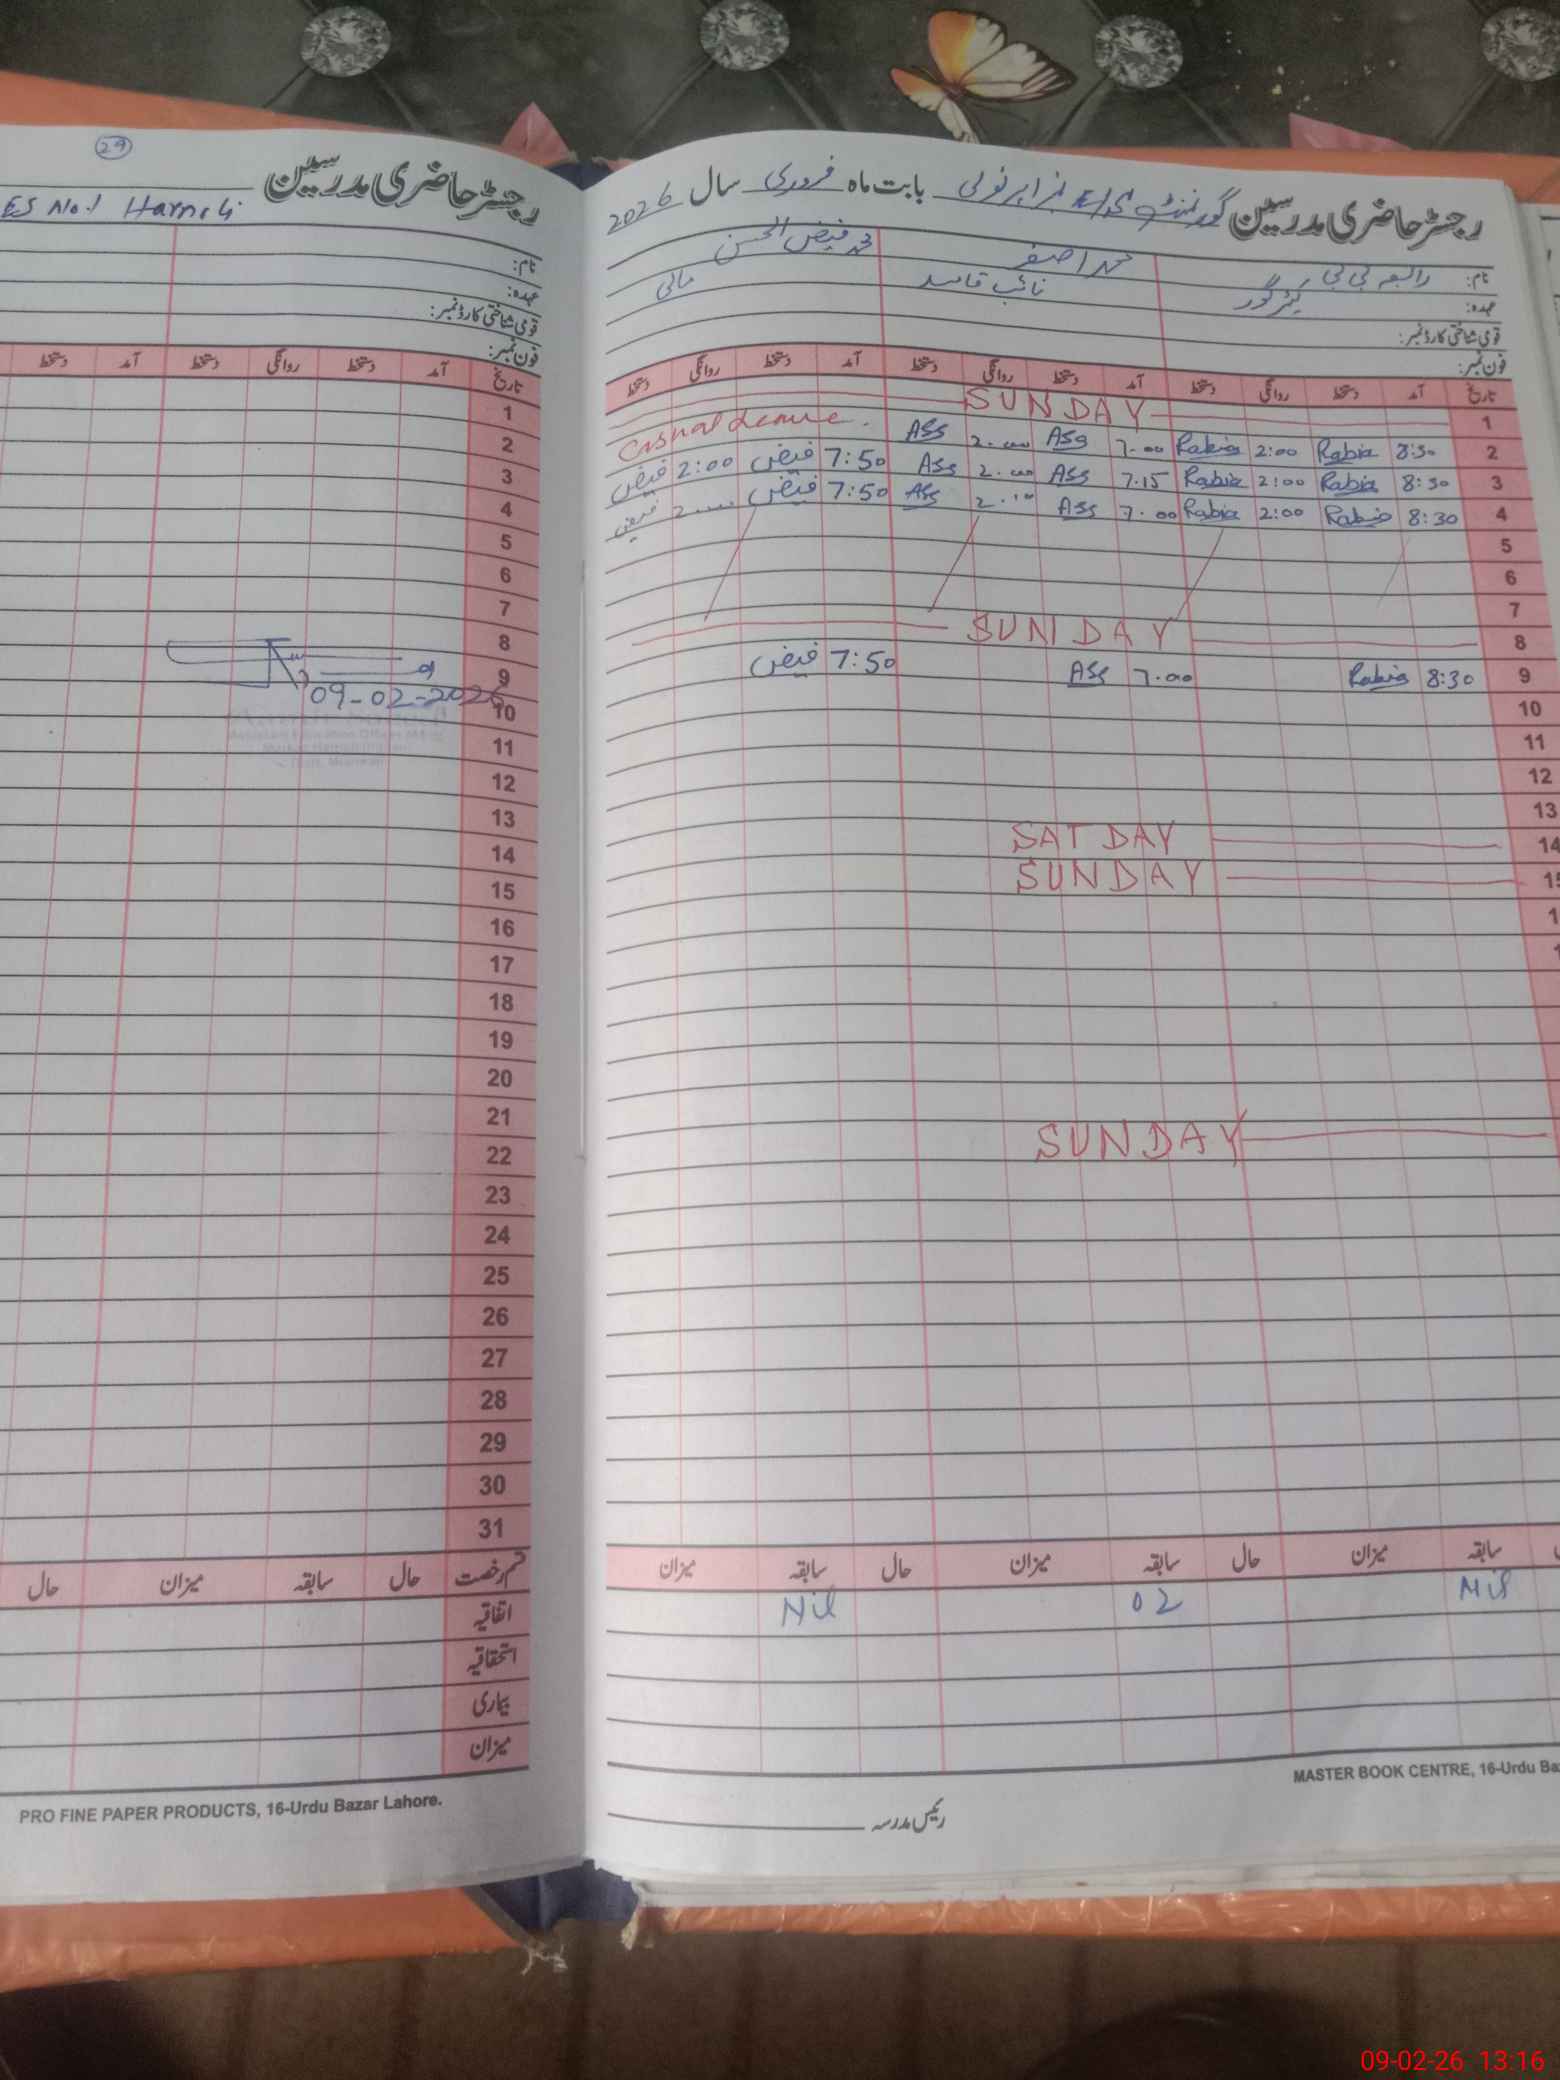 29
رجسٹر حاضری مدرسین
ES No.1 Harnoli
نام:
عہدہ:
قومی شناختی کارڈ نمبر:
فون نمبر:
تاریخ آمد دستخط روانگی دستخط آمد دستخط
1
2
3
4
5
6
7
8
9
09-02-2026
10
11
12
13
14
15
16
17
18
19
20
21
22
23
24
25
26
27
28
29
30
31
قسم رخصت حال سابقہ میزان حال
اتفاقیہ
استحقاقیہ
بیماری
میزان
PRO FINE PAPER PRODUCTS, 16-Urdu Bazar Lahore.
رجسٹر حاضری مدرسین گورنمنٹ بابت ماہ فروری سال 2026
نام: رابعہ بی بی محمد اصغر محمد فیض الحسن
عہدہ: کیئر گور نائب قاصد مالی
قومی شناختی کارڈ نمبر:
فون نمبر:
تاریخ آمد دستخط روانگی دستخط آمد دستخط روانگی دستخط آمد دستخط روانگی دستخط
1 SUNDAY
2 8:30 Rabia 2:00 Rabia 7.00 Asg 2.00 Asg Casual Leave.
3 8:30 Rabia 2:00 Rabia 7.15 Asg 2.00 Asg 7:50 فیض 2:00 فیض
4 8:30 Rabia 2:00 Rabia 7.00 Asg 2.10 Asg 7:50 فیض 2.00 فیض
5
6
7
8 SUNDAY
9 8:30 Rabia 7.00 Asg 7:50 فیض
10
11
12
13
14 SATDAY
15 SUNDAY
SUNDAY
سابقہ میزان حال سابقہ میزان حال سابقہ میزان
Nil 02 Nil
MASTER BOOK CENTRE, 16-Urdu Ba
رئیس مدرسہ
09-02-26 13:16